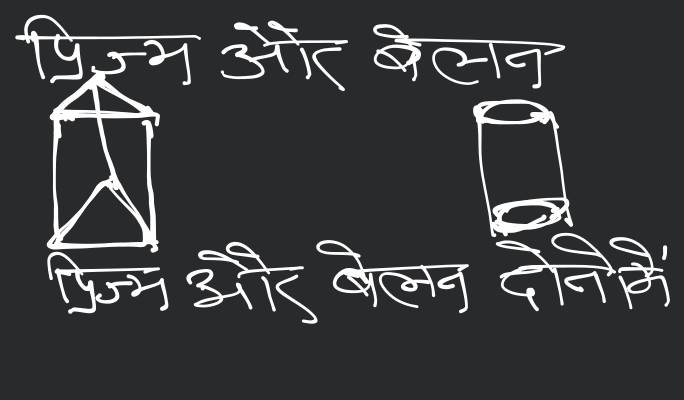 प्रिज्म और बेलन
प्रिज्म और बेलन दोनों में